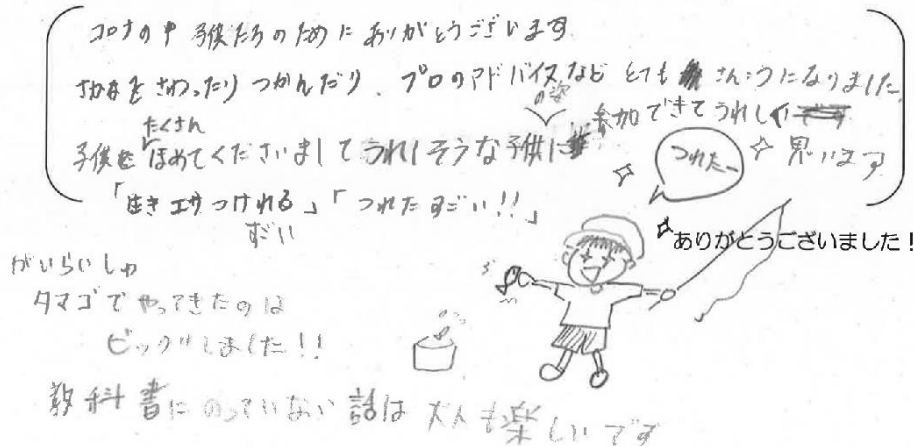 コロナの中 子供たちのためにありがとうございます
さかなをさわったりつかんだり、プロのアドバイスなど とても さんこうになりました。
子供をたくさんほめてくださいまして うれしそうな子供の姿に 参加できてうれしく思います
「生きエサつけれる」「つれたすごい!!」
すごい
つれたー
ありがとうございました！
がいらいしゅ
タマゴでやってきたのは
ビックリしました!!
教科書にのっていない話は大人も楽しいです